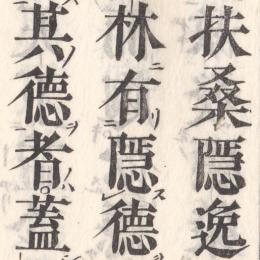 扶桑隱逸
林ニ有リ隱德
其ノ德ヲ者ハ蓋